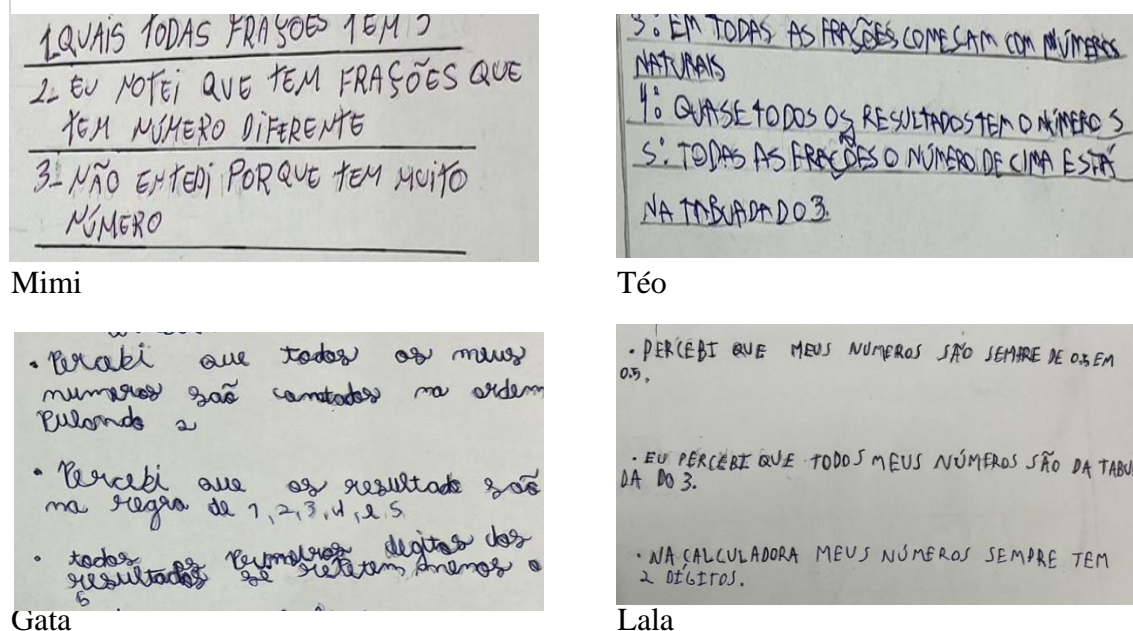 1. QUAIS TODAS FRAÇOES TEM 5
2- EU NOTEI QUE TEM FRAÇÕES QUE
TEM NÚMERO DIFERENTE
3- NÃO ENTEDI PORQUE TEM MUITO
NÚMERO
Mimi
3: EM TODAS AS FRAÇÕES COMEÇAM COM NÚMEROS
NATURAIS
4: QUASE TODOS OS RESULTADOS TEM O NÚMERO 5
5: TODAS AS FRAÇÕES O NÚMERO DE CIMA ESTÁ
NA TABUADA DO 3.
Téo
• Percebi que todos os meus
numeros são contados na ordem
Pulando 2
• Percebi que os resultado são
na regra de 1, 2, 3, 4, e 5
• todos os primeiros degitos dos
resultados se retetem menos o
5
Gata
• PERCEBI QUE MEUS NUMEROS SÃO SEMPRE DE 0.5 EM
0.5.
• EU PERCEBI QUE TODOS MEUS NÚMEROS SÃO DA TABU
DA DO 3.
• NA CALCULADORA MEUS NÚMEROS SEMPRE TEM
2 DÍGITOS.
Lala